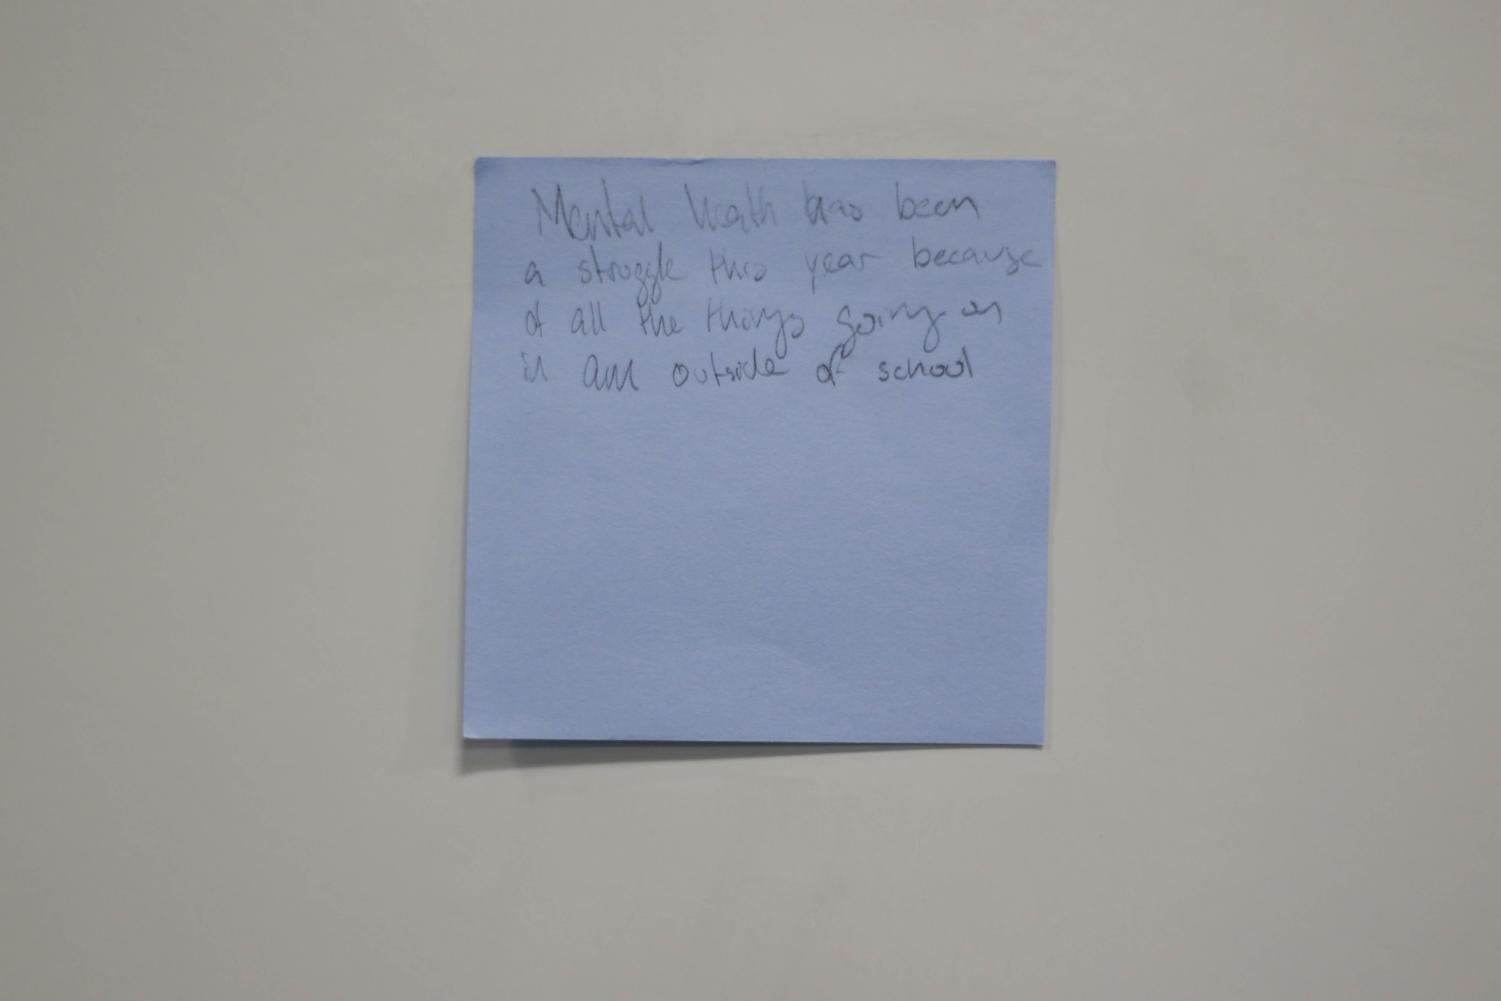 Mental heath has been
a struggle this year because
of all the things going on
in and outside of school